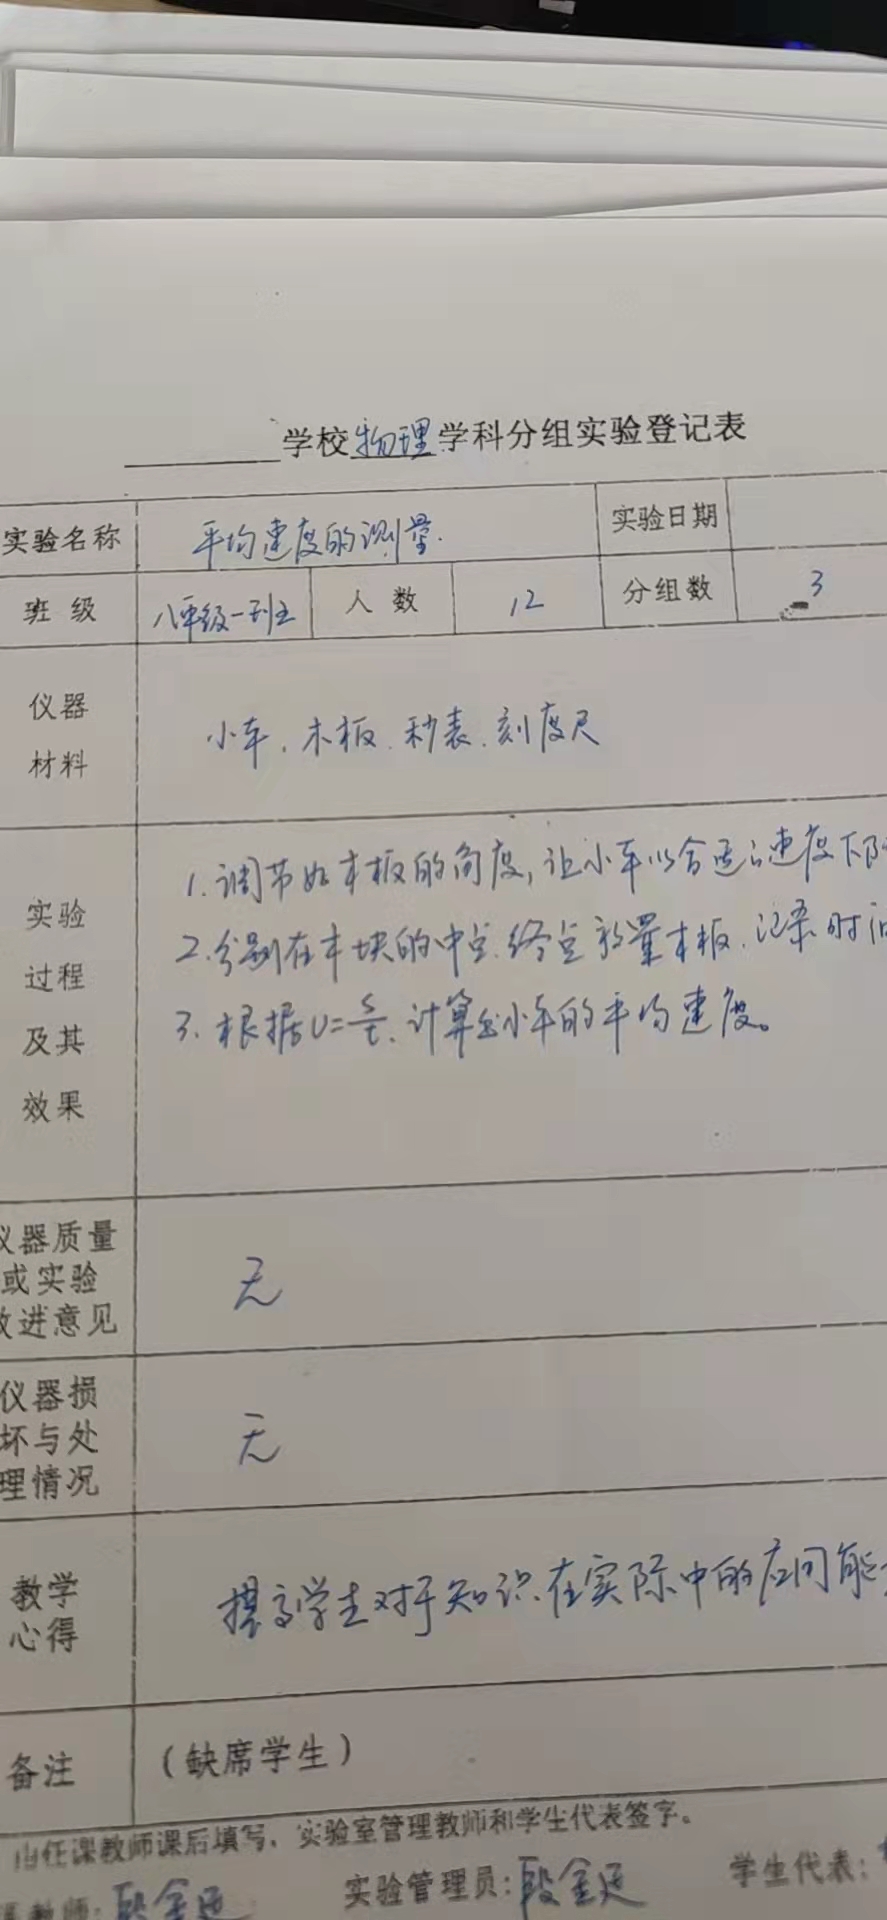 学校物理学科分组实验登记表
实验名称 平均速度的测量. 实验日期
班级 八年级一班 人数 12 分组数 3
仪器材料 小车、木板、秒表、刻度尺
实验过程及其效果
1.调节好木板的角度,让小车以合适的速度下
2.分别在木块的中点、终点放置木板、记录时
3.根据v=s/t、计算出小车的平均速度。
仪器质量
或实验
改进意见
无
仪器损
坏与处
理情况
无
教学
心得
提高学生对于知识在实际中的应用能
备注 (缺席学生)
由任课教师课后填写,实验室管理教师和学生代表签字。
教师: 实验管理员: 学生代表: